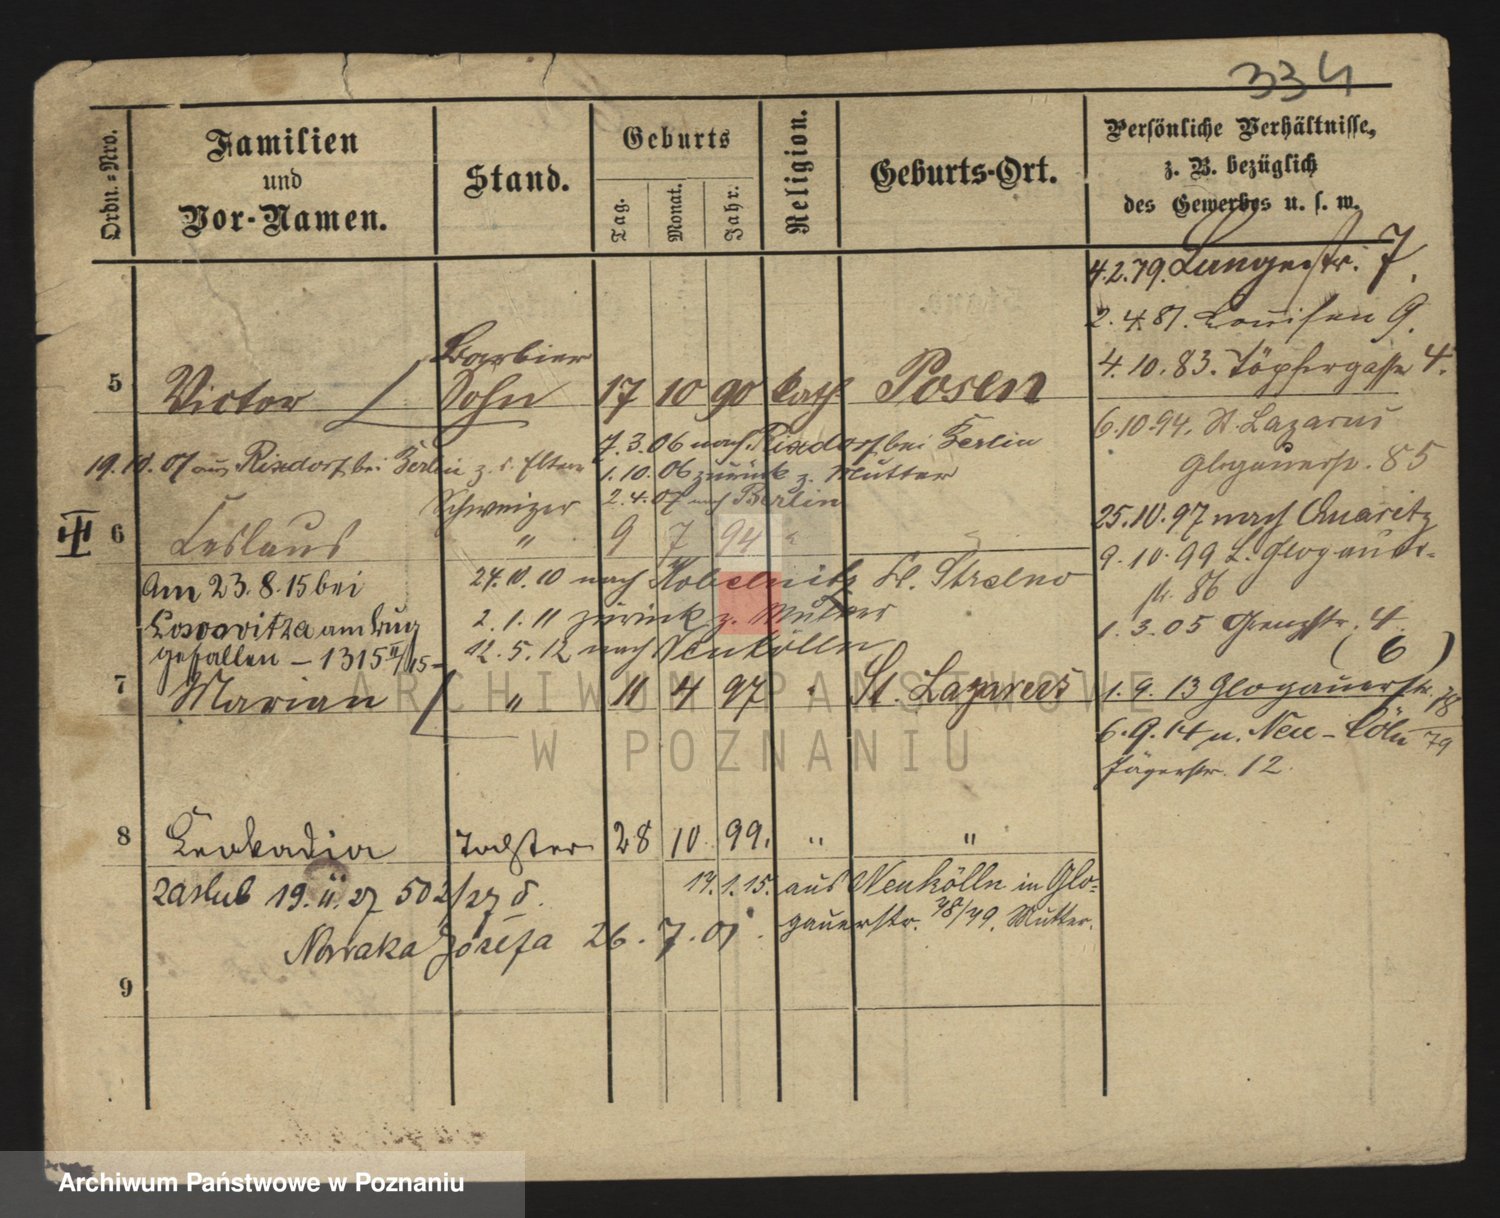 334
Ordn.-Nro.
Familien
und
Vor-Namen.
Stand.
Geburts
Tag.
Monat.
Jahr.
Religion.
Geburts-Ort.
Persönliche Verhältnisse,
z. B. bezüglich
des Gewerbes u. s. w.
4.2.79. Langestr. 7.
2.4.81. Louisen 9.
4.10.83. Töpfergasse 4.
6.10.94. St. Lazarus
Glogauerstr. 85
25.10.97 nach Quaritz
9.10.99 L. Glogauer-
str. 86
1.3.05 Grenzstr. 4.
(6)
1.9.13 Glogauerstr. 78
79
6.9.14 n. Neu-Cöln
Jägerstr. 12.
Barbier
5 Victor Sohn 17 10 90 kath Posen
7.3.06 nach Rixdorf bei Berlin
19.10.07 aus Rixdorf bei Berlin z. d. Eltern
1.10.06 zurück z. Mutter
Schweizer
2.4.07 nach Berlin
6 Leslaus " 9 7 94 "
Am 23.8.15 bei
24.10.10 nach Kobelnitz Kr. Strelno
2.1.11 zurück z. Mutter
gefallen – 1315 II/15 –
12.5.12 nach Neukölln
7 Marian " 11 4 97 " St. Lazarus
8 Leokadia Tochter 28 10 99. " "
zaślub 19.II.27 502/27 d.
14.1.15. aus Neukölln in Glo-
gauerstr. 78/79. Mutter.
Nowaka Józefa 26.7.01.
9
ARCHIWUM PAŃSTWOWE
W POZNANIU
Archiwum Państwowe w Poznaniu